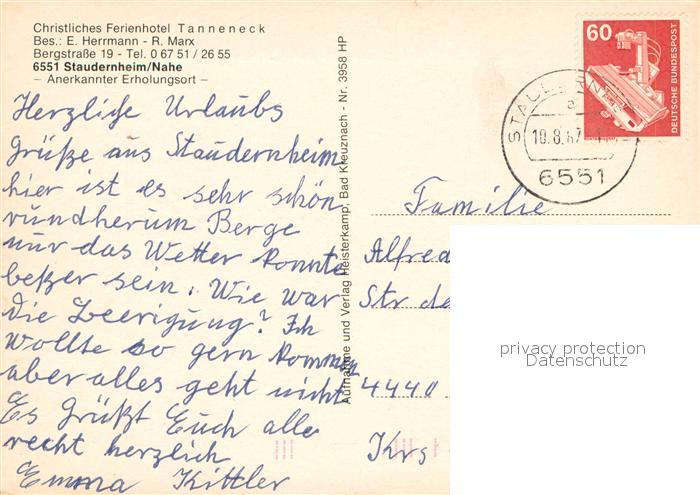 Christliches Ferienhotel Tanneneck
Bes.: E. Herrmann - R. Marx
Bergstraße 19 - Tel. 0 67 51 / 26 55
6551 Staudernheim/Nahe
– Anerkannter Erholungsort –
Herzliche Urlaubs
grüße aus Staudernheim,
hier ist es sehr schön
rundherum Berge
nur das Wetter konnte
beßer sein. Wie war
die Beerigung? Ich
wollte so gern kommen
aber alles geht nicht
Es Grüßt Euch alle
recht herzlich
Emma Kittler
Aufnahme und Verlag Heisterkamp, Bad Kreuznach - Nr. 3958 HP
60
DEUTSCHE BUNDESPOST
a
10.8.87
6551
Familie
Alfred
Str de
4440
Krs
privacy protection
Datenschutz